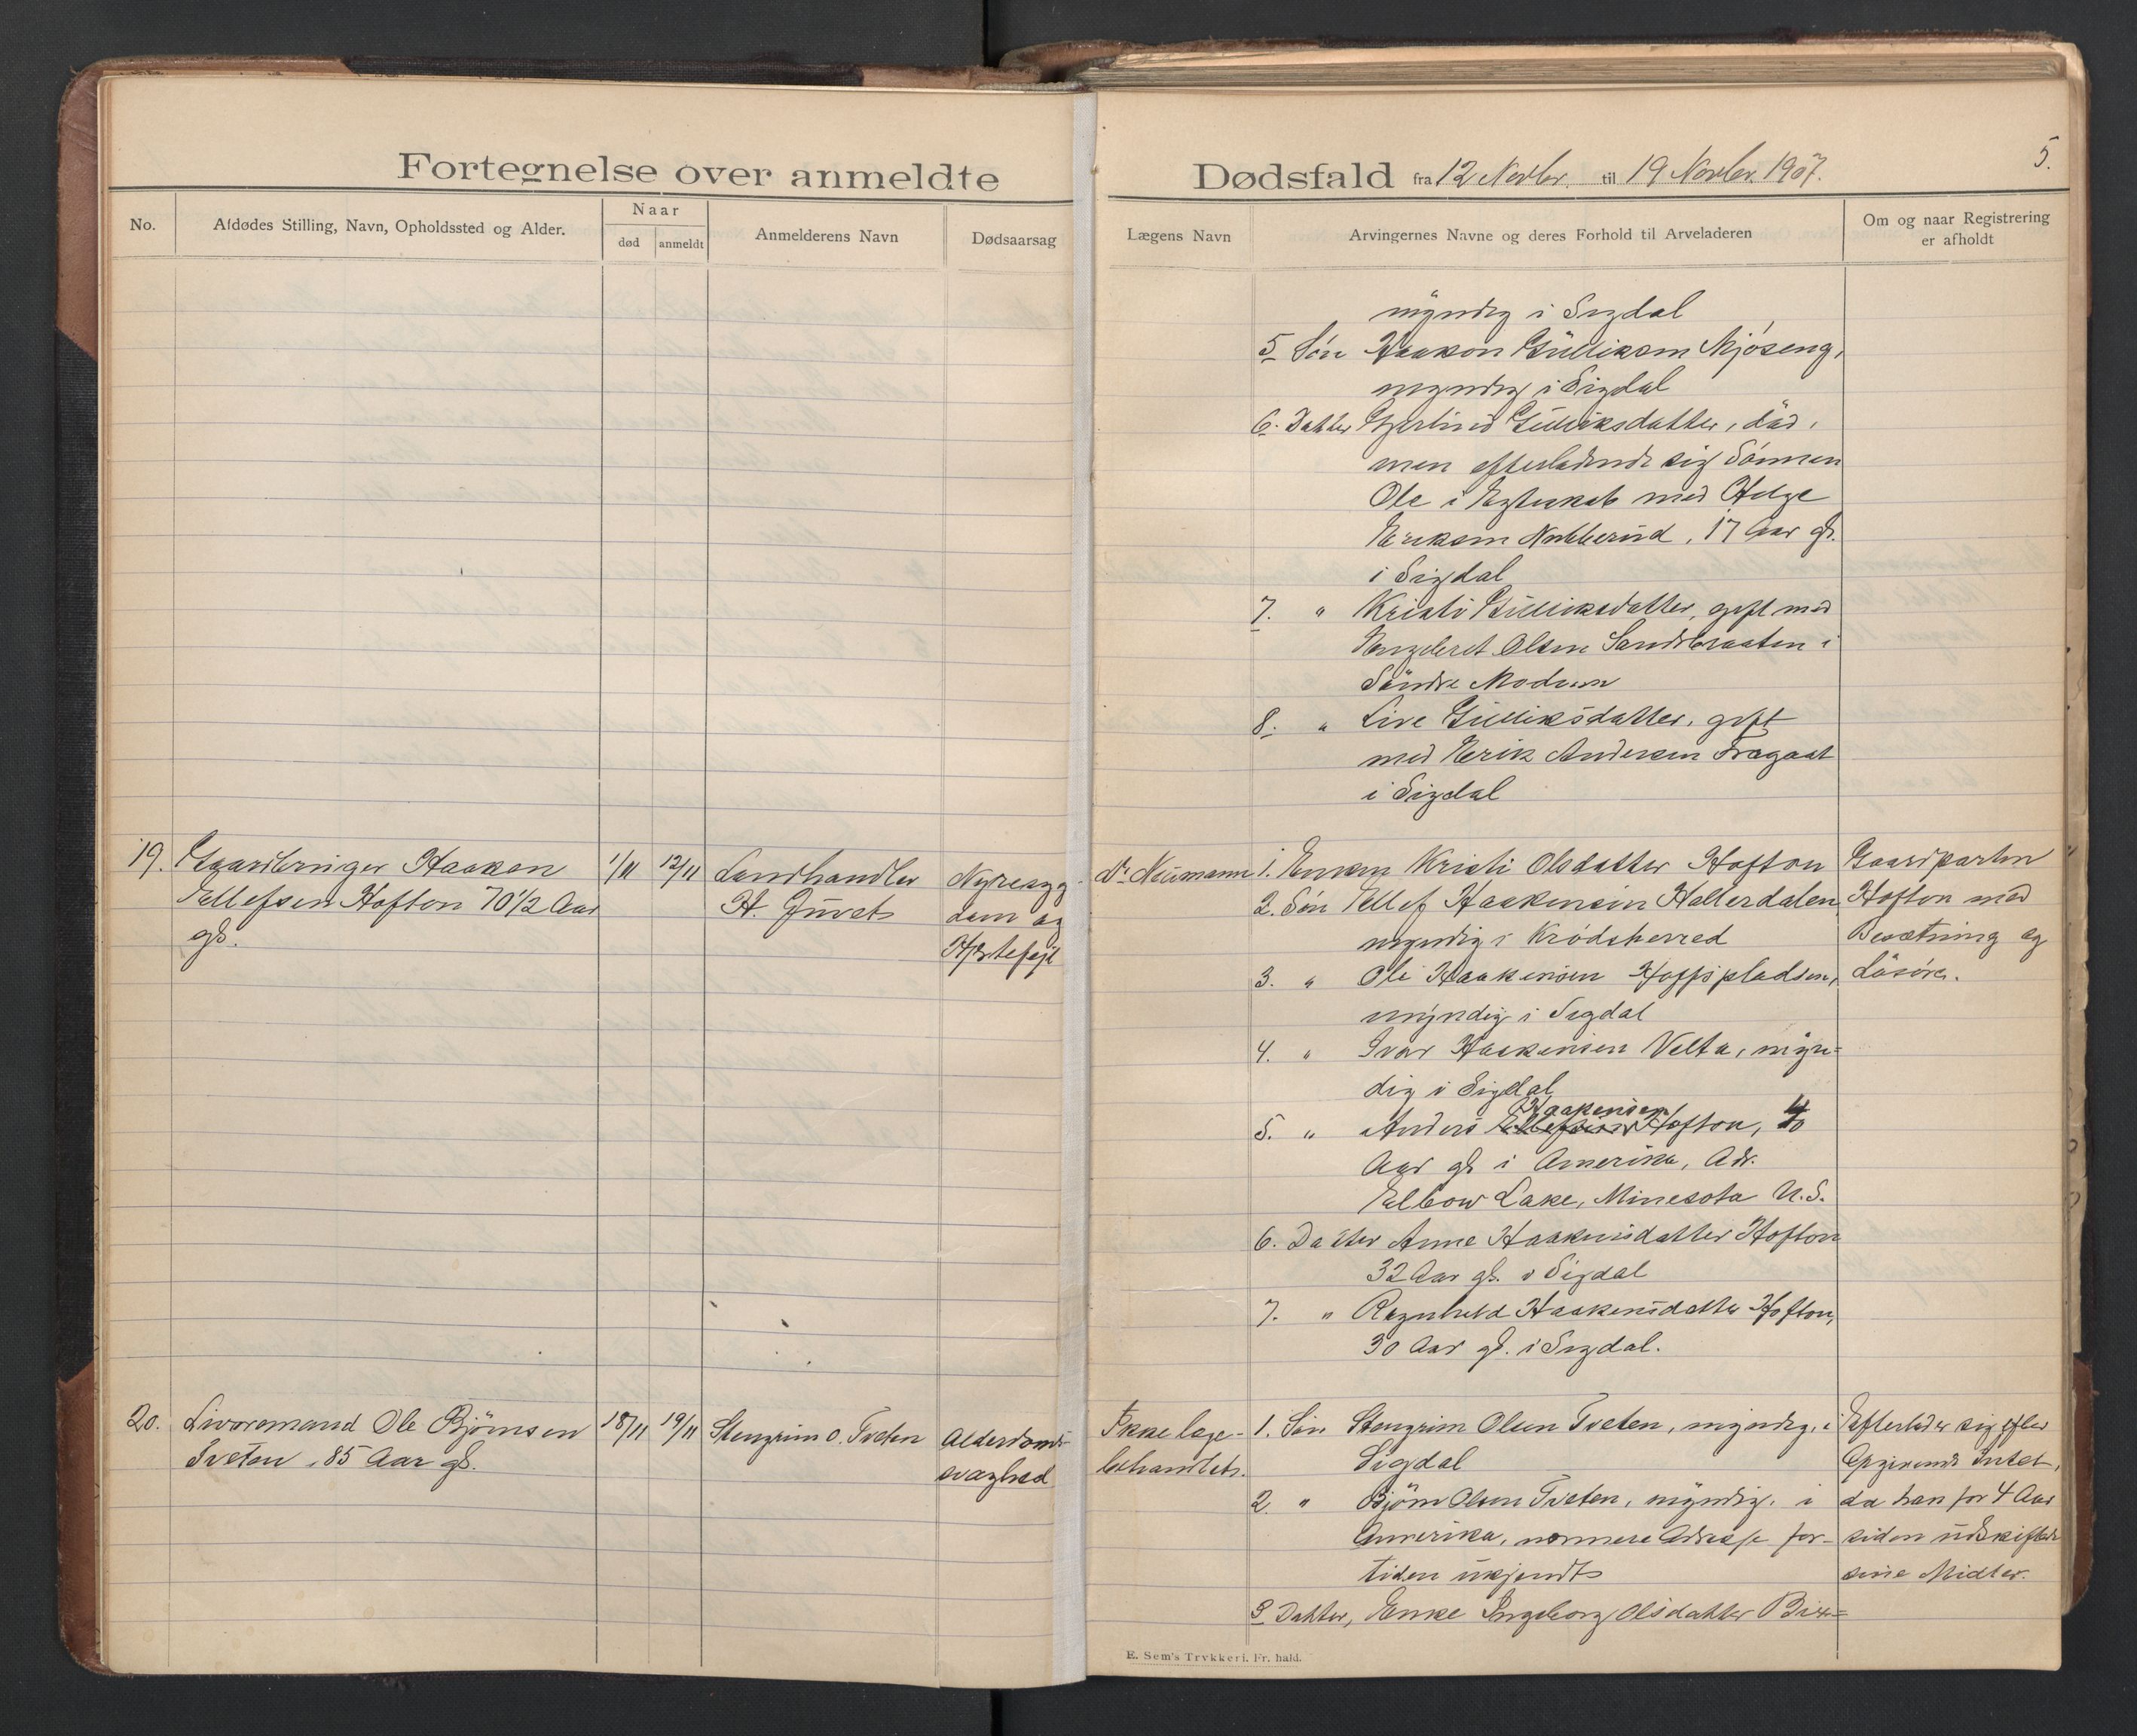 Fortegnelse over anmeldte
Dødsfald fra 12 Novbr. til 19 Novbr. 1907.
5.
No.
Afdødes Stilling, Navn, Opholdssted og Alder.
Naar
død
anmeldt
Anmelderens Navn
Dødsaarsag
Lægens Navn
Arvingernes Navne og deres Forhold til Arveladeren
Om og naar Registrering
er afholdt
myndig i Sigdal
5. Søn Haakon Gulliksen Mjøseng,
myndig i Sigdal
6. Datter Gulliksdatter, død,
men efterladende sig Sønnen
Ole i Egteskab med Helge
Eriksen Nubberud, 17 Aar gl.
i Sigdal
7. " Kristi Gulliksdatter, gift med
Engebret Olsen Sandsbraaten i
Søndre Modum
8. " Live Gulliksdatter, gift
med Erik Andersen
i Sigdal
19.
Gaardbruger Haaken
Ellefsen Hofton 70 1/2 Aar
gl.
1/11
12/11
Landhandler
H. Juvet
Nyresyg-
dom og
Hjertefejl
Dr. Neumann
1. Enken Kristi Olsdatter Hofton
2. Søn Ellef Haakensen Hallerdalen,
myndig i Krødsherred
3. " Ole Haakensen Hoffspladsen,
myndig i Sigdal
4. " Ivar Haakensen Velta, myn-
dig i Sigdal
Haakensen
5. " Anders Ellefsen Hofton, 40
Aar gl. i Amerika, Adr.
Elbow Lake, Minesota U.S.
6. Datter Anne Haakensdatter Hofton
32 Aar gl. i Sigdal
7. " Ragnhild Haakensdatter Hofton,
30 Aar gl. i Sigdal.
Gaardparten
Hofton med
Besætning og
Løsøre.
20.
Livøremand Ole Bjørnsen
Tveten, 85 Aar gl.
18/11
19/11
Stengrim O. Tveten
Alderdoms-
svaghed
Ikke læge-
behandlet.
1. Søn Stengrim Olsen Tveten, myndig, i
Sigdal
2. " Bjørn Olsen Tveten, myndig, i
Amerika, nærmere Adresse for-
tiden ukjendt
3. Datter, Enke Ingeborg Olsdatter
Efterlader sig efter
Opgivende Intet,
da han for 4 Aar
siden udskiftede
sine Midler.
E. Sem's Trykkeri, Fr. hald.